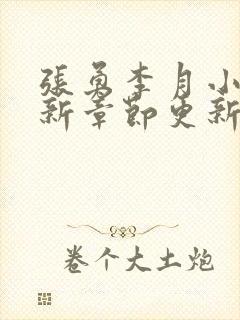 張勇李月小
新章節更新
卷个大土炮